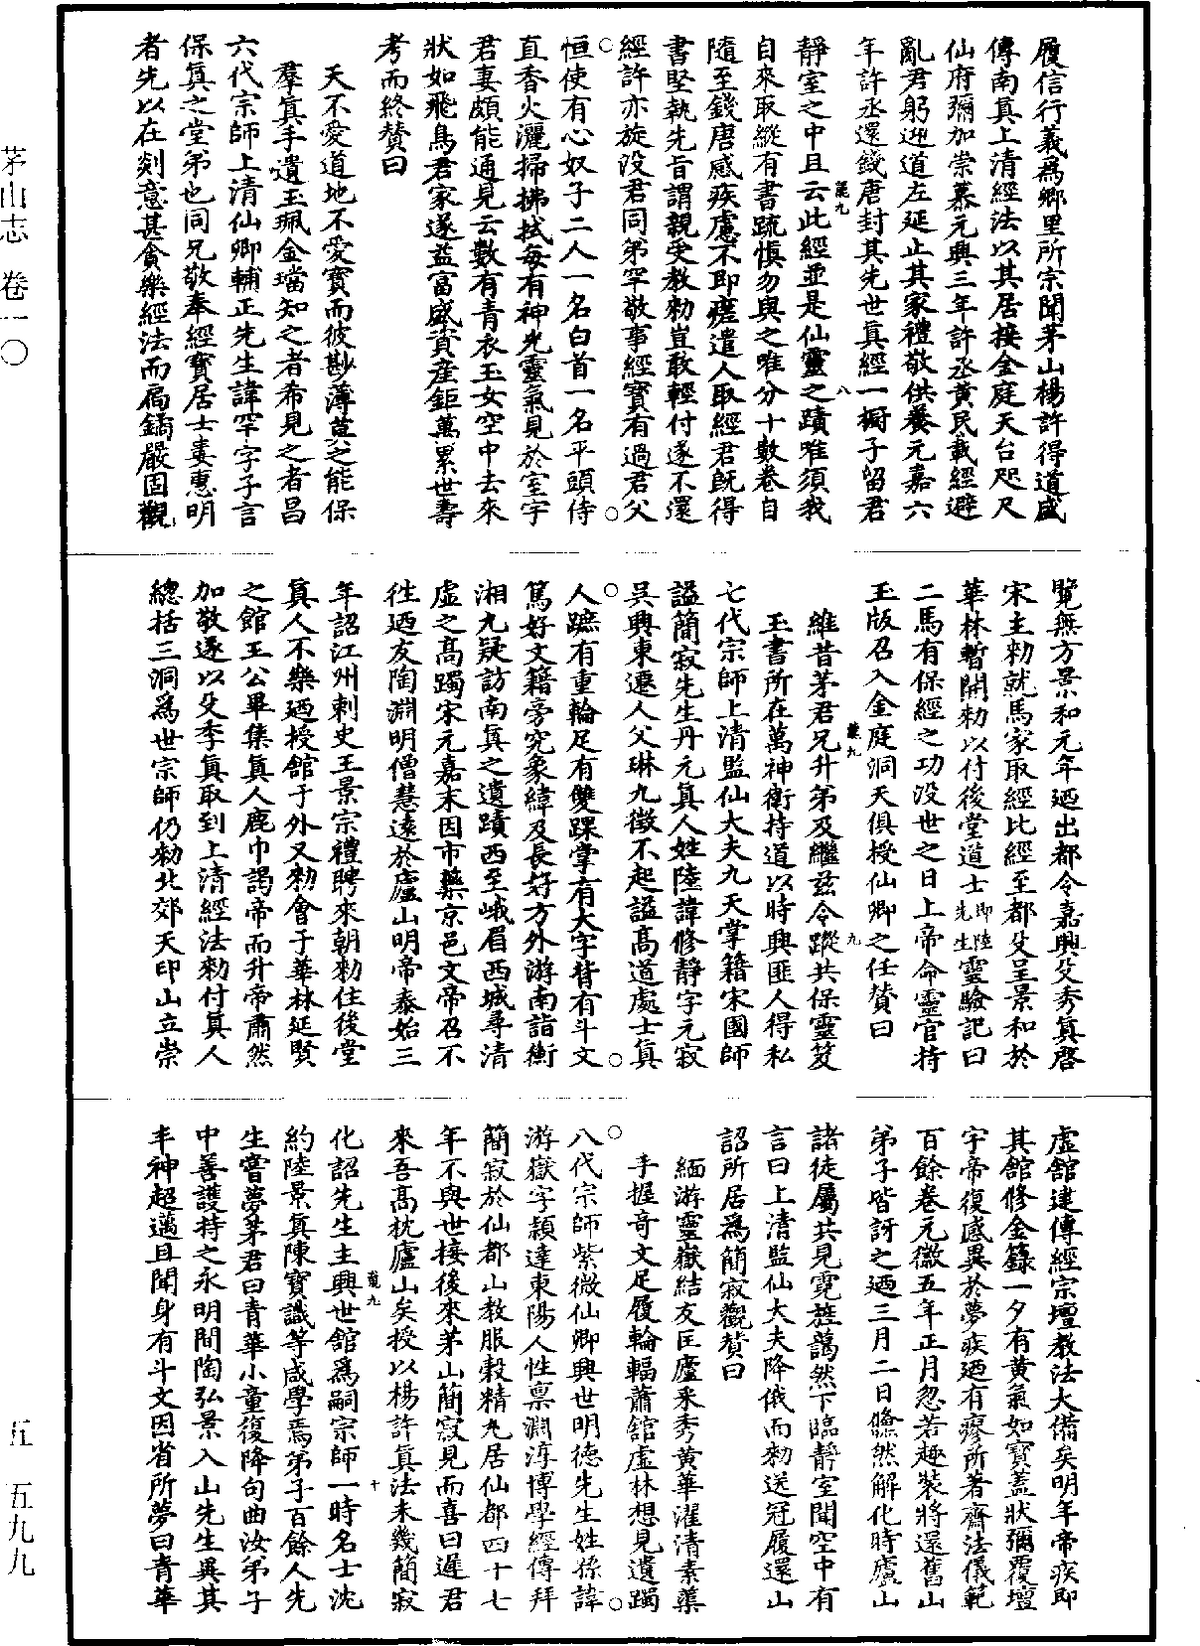 履信行義爲鄉里所宗聞茅山楊許得道盛
傳南真上清經法以其居接金庭天台咫尺
仙府彌加崇慕元興三年許丞黃民載經避
亂君躬迎道左延止其家禮敬供養元嘉六
年許丞還錢唐封其先世真經一櫥子留君
靜室之中且云此經並是仙靈之蹟唯須我
自來取縱有書疏慎勿與之唯分十數卷自
隨至錢唐感疾慮不即瘥遣人取經君既得
書堅執先旨謂親受教勑豈敢輕付遂不還
經許亦旋没君同弟罕敬事經寶有過君父
恒使有心奴子二人一名白首一名平頭侍
直香火灑掃拂拭每有神光靈氣見於室宇
君妻頗能通見云數有青衣玉女空中去來
狀如飛鳥君家遂益富盛資産鉅萬累世壽
考而終贊曰
天不愛道地不愛寶而彼尠薄莫之能保
羣真手遺玉珮金璫知之者希見之者昌
六代宗師上清仙卿輔正先生諱罕字子言
保真之堂弟也同兄敬奉經寶居士婁惠明
者先以在剡意甚貪樂經法而扃鐍嚴固觀
覽無方景和元年廼出都令嘉興殳秀真啓
宋主勑就馬家取經比經至都殳呈景和於
華林暫開勑以付後堂道士即陸先生靈驗記曰
二馬有保經之功没世之日上帝命靈官持
玉版召入金庭洞天俱授仙卿之任贊曰
維昔茅君兄升弟及繼兹令蹤共保靈笈
玉書所在萬神衛持道以時興匪人得私
七代宗師上清監仙大夫九天掌籍宋國師
諡簡寂先生丹元真人姓陸諱修靜字元寂
吴興東遷人父琳九徵不起諡高道處士真
人蹠有重輪足有雙踝掌有大字背有斗文
篤好文籍旁究象緯及長好方外游南詣衡
湘九疑訪南真之遺蹟西至峨眉西城尋清
虛之高躅宋元嘉末因市藥京邑文帝召不
徃廼友陶淵明僧慧遠於廬山明帝泰始三
年詔江州刺史王景宗禮聘來朝勑住後堂
真人不樂廼授館于外又勑會于華林延賢
之館王公畢集真人鹿巾謁帝而升帝肅然
加敬遂以殳季真取到上清經法勑付真人
總括三洞爲世宗師仍勑北郊天印山立崇
虛館建傳經宗壇教法大備矣明年帝疾即
其館修金籙一夕有黃氣如寶蓋狀彌覆壇
宇帝復感異於夢疾廼有瘳所著齋法儀範
百餘卷元徽五年正月忽若趣装將還舊山
弟子皆訝之廼三月二日儵然解化時廬山
諸徒屬共見霓旌藹然下臨靜室聞空中有
言曰上清監仙大夫降俄而勑送冠履還山
詔所居爲簡寂觀贊曰
緬游靈嶽結友匡廬采秀黃華濯清素蕖
手握奇文足履輪輻蕭館虛林想見遺躅
八代宗師紫微仙卿興世明德先生姓孫諱
游嶽字穎達東陽人性禀淵淳博學經傳拜
簡寂於仙都山教服穀精丸居仙都四十七
年不與世接後來茅山簡寂見而喜曰遲君
來吾高枕廬山矣授以楊許真法未幾簡寂
化詔先生主興世館爲嗣宗師一時名士沈
約陸景真陳寶識等咸學焉弟子百餘人先
生嘗夢茅君曰青華小童復降句曲汝弟子
中善護持之永明間陶弘景入山先生異其
丰神超邁且聞身有斗文因省所夢曰青華
龍九 八
龍九 九
龍九 十
茅山志 卷一〇
五 五九九